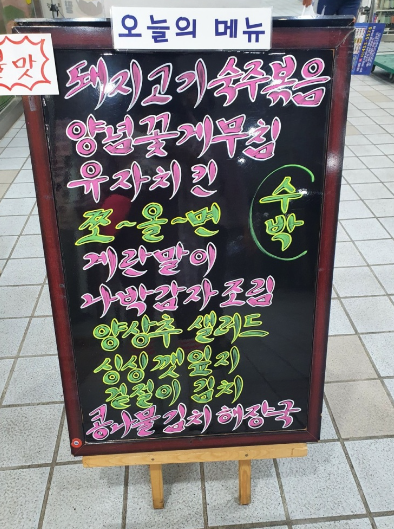 오늘의 메뉴
물맛
돼지고기 숙주볶음
양념꽃게무침
유자치킨
쪼~올~면
수박
계란말이
나박감자조림
양상추 샐러드
싱싱 깻잎지
겉절이 김치
콩나물김치해장국